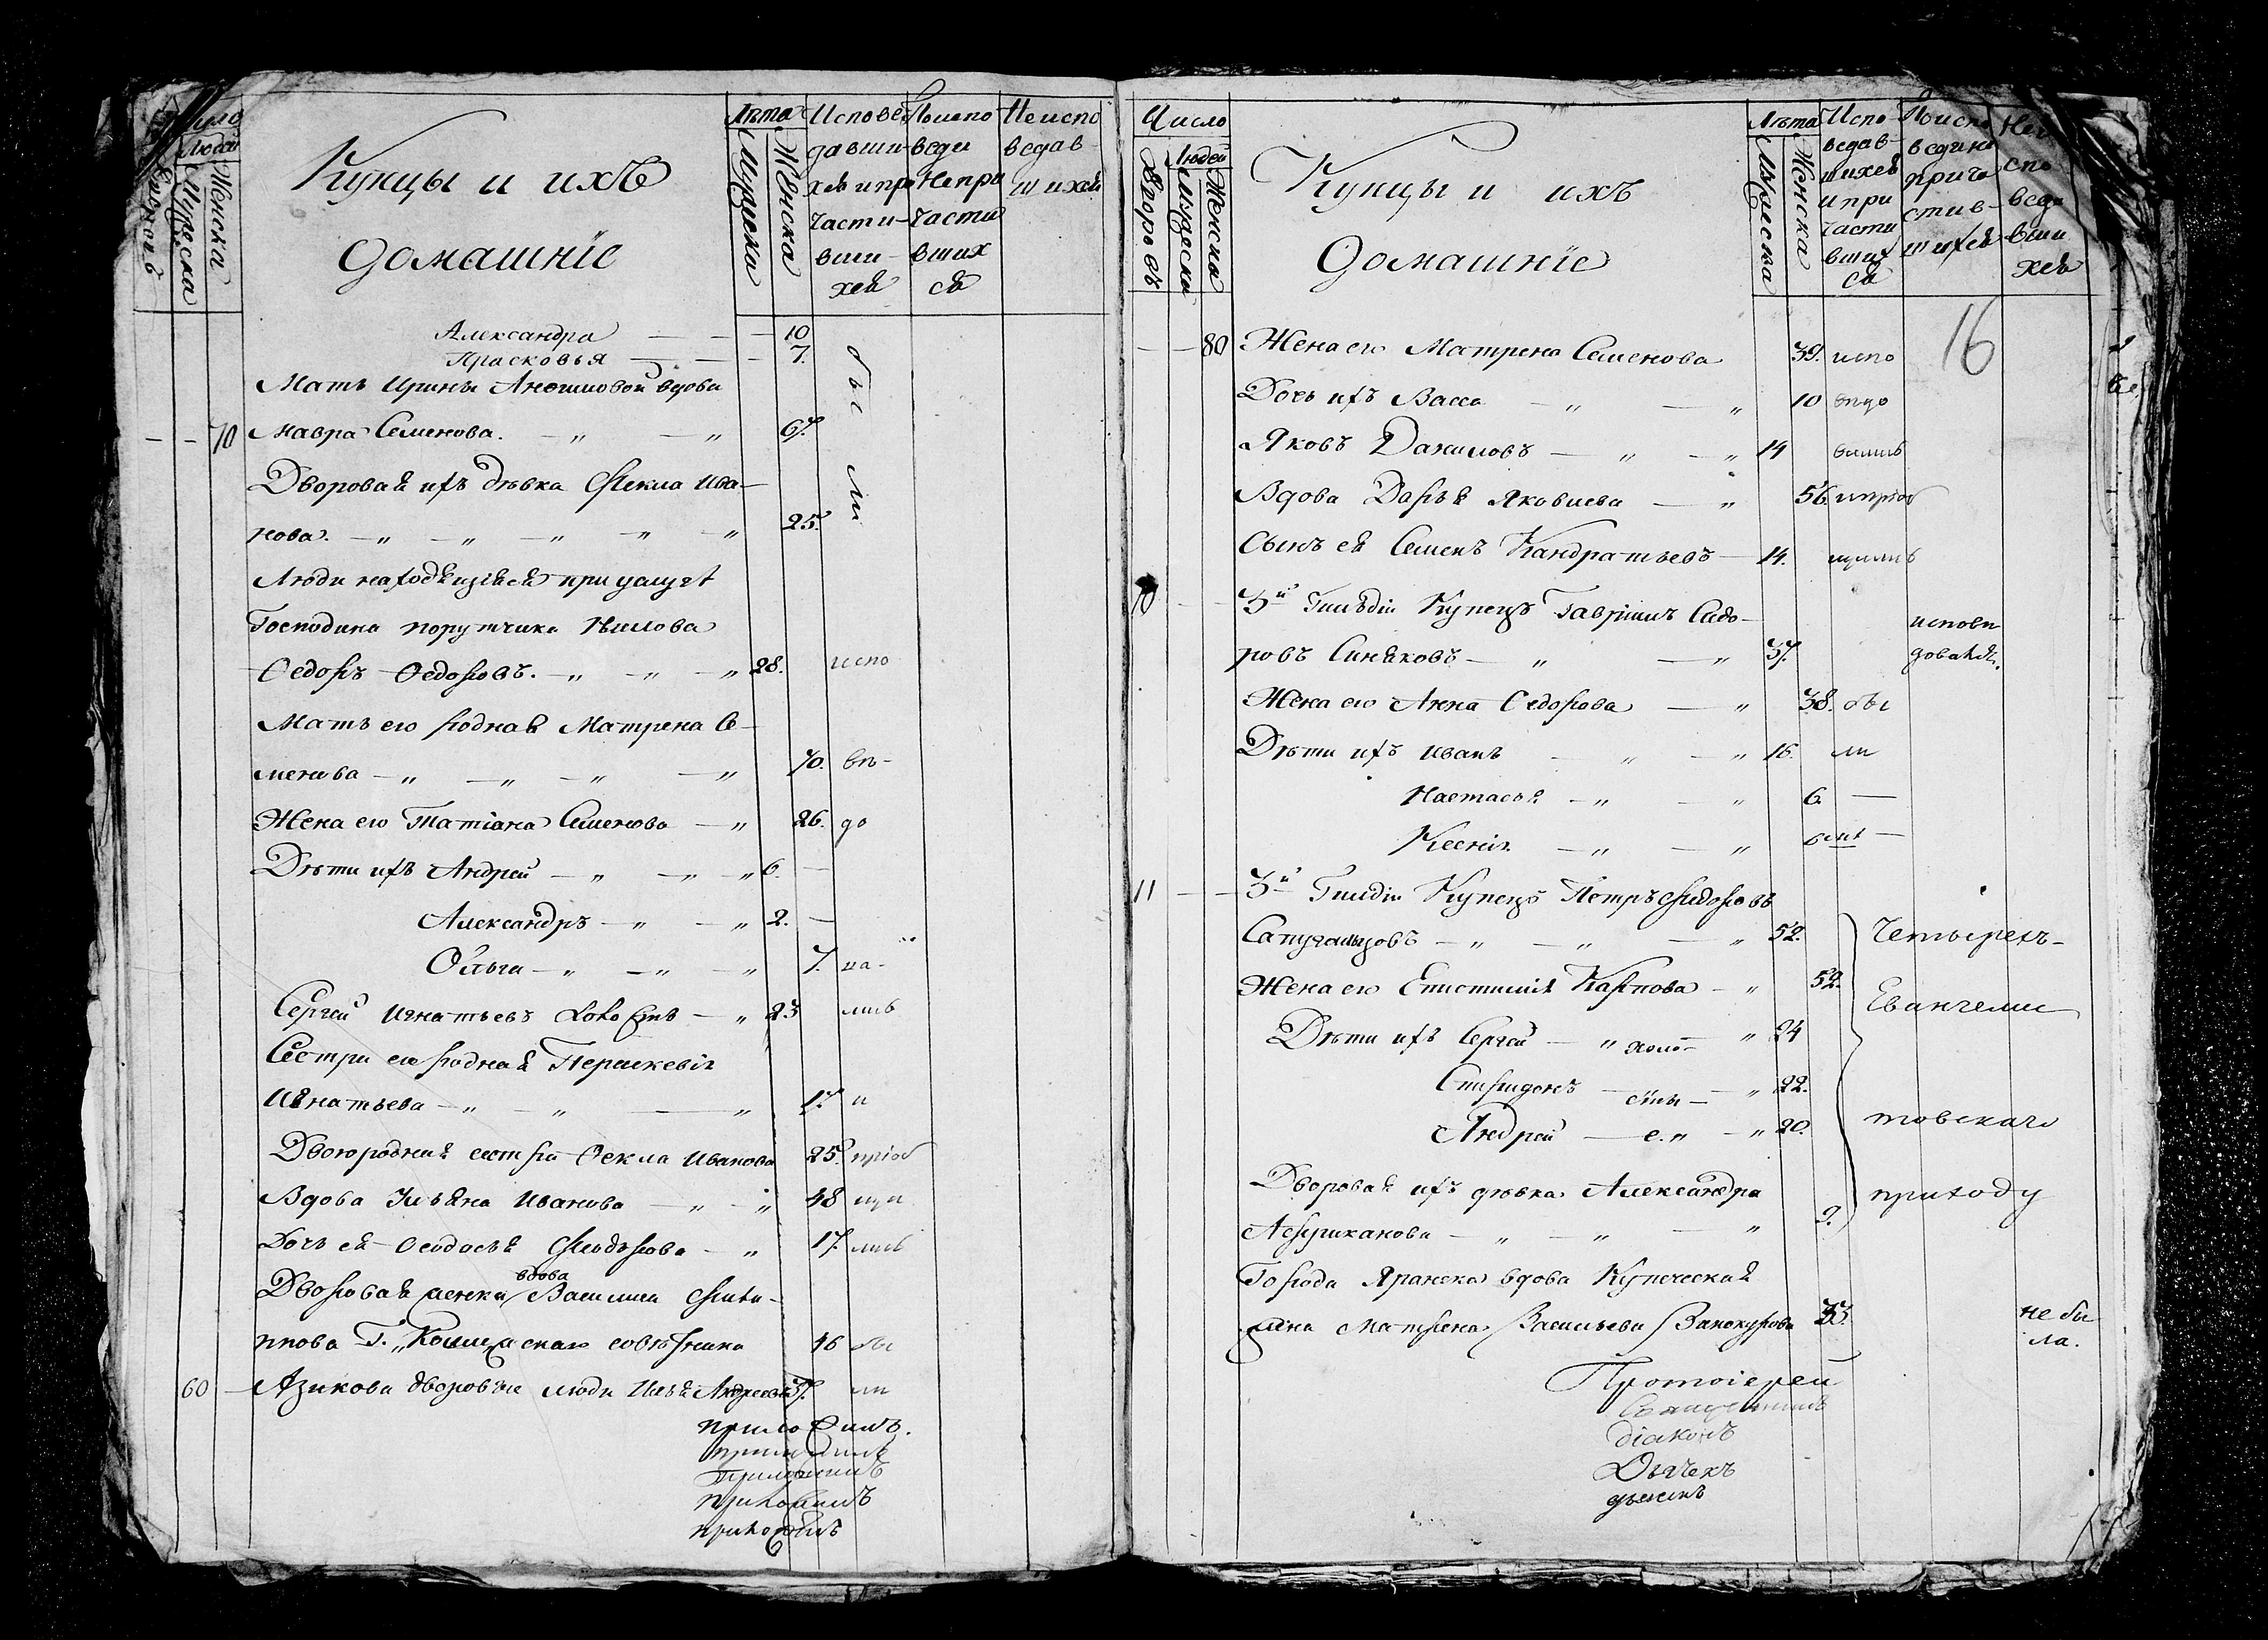 Число
Людей
Дворовъ
Мужеска
Женска
Купцы и ихъ
домашніе
Лѣта
Мужеска
Женска
Исповѣ
давши
хся и при
части
вши
хся
По испо
веди
не при
части
вших
ся
Не испо
ведав
шихся
Александра — — — 10
Прасковья — — — 7.
Мать Ирины вдова
— — 70 Мавра Семенова. — „ — „ 67.
бы
ли
Дворовая ихъ дѣвка Ѳекла Ива-
нова. — „ — „ — „ „ „ 25.
Люди находящіися при услугѣ
Господина порутчика Нилова
Ѳедоръ Ѳедоровъ. — „ — „ — „ 28. испо
Мать его родная Матрена Се-
менова — „ — „ — „ — „ 70. вѣ-
Жена его Татіана Семенова — „ 26. до
Дѣти ихъ Андрей — „ — „ — „ 6. —
Александръ — „ — „ 2. —
Ольга — „ — „ — „ 7. ва-
Сергей Игнатьевъ — „ 23 лись
Сестра его родная Параскевія
Игнатьева — „ — „ — „ 17. и
Двоюродная сестра Ѳекла Иванова 25. пріоб
Вдова Ульяна Иванова — „ — „ 48 щи
Дочь ея Ѳеодосья Ѳеодорова — „ 17. лись
вдова
Дворовая женка Василиса Фили-
пова Г. совѣтника 46 бы
60 — Азикова дворовые люди Илья Андреевъ 37. ли
приложилъ.
приложилъ
приложилъ
приложилъ
приложилъ
Число
Людей
Дворовъ
Мужеска
Женска
Купцы и ихъ
домашніе
Лѣта
Мужеска
Женска
Испо
ведав
шихся
и при
части
вших
ся
По испо
ведини
прича
стив
шихся
Неи
спо
веда
вши
хся
16
— — 80 Жена его Матрена Семенова 39. испо
Дочь ихъ Васса — „ — „ 10 ведо
Яковъ Даниловъ — „ — „ 14 вались
Вдова Дарья Яковлева — „ 56. и пріоб
Сынъ ея Семенъ Кандратьевъ — 14. щились
10 — — 3й Гильдіи Купецъ Гаврилъ Сидо-
ровъ Синяковъ — „ — „ 37. исповѣ
довался.
Жена его Анна Ѳедорова — „ 38. бы
Дѣти ихъ Иванъ — „ — „ 16. ли
Настасья — „ — „ 6. —
Ксенія — „ — „
11 — — 3й Гилдіи Купецъ Петръ Ѳедоровъ
— „ — „ — „ 52.
Жена его Епистимія Карпова — „ 52.
Дѣти ихъ Сергей — „ холо- „ 24
Спиридонъ — сты — „ 22.
Андрей — е. „ — „ 20.
Дворовая ихъ дѣвка Александра
— „ — „ — „ 9.
Четырехъ-
Евангелис
товскаго
приходу
Города Яранска вдова Купеческая
жена Матрена Васильева Винокурова 33. не бы
ла.
Протоіерей
Священникъ
діаконъ
Дьячекъ